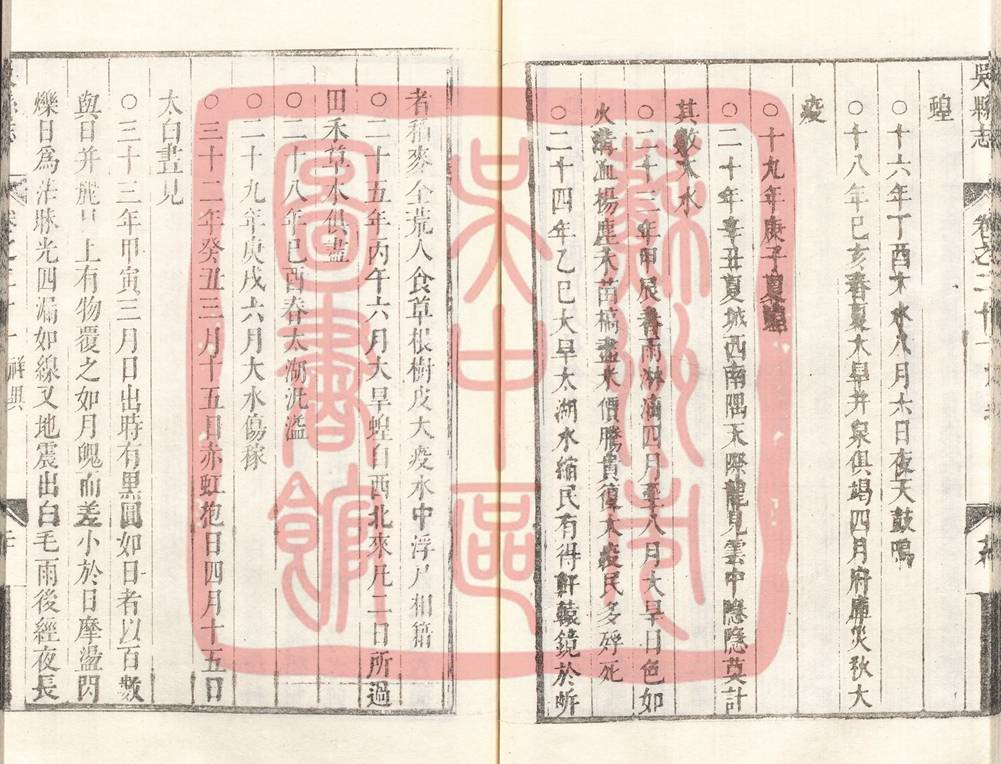 吳縣志
蝗
○十六年丁酉大水八月六日夜天鼓鳴
○十八年己亥春夏大旱井泉俱竭四月府庫災秋大
疫
○十九年庚子夏蝗
○二十年辛丑夏城西南隅天際龍見雲中隱隱莫計
其數大水
○二十三年甲辰春雨淋漓四月至八月大旱日色如
火溝血楊塵禾苗槁盡米價騰貴復大疫民多殍死
○二十四年乙巳大旱太湖水縮民有得軒轅鏡於
者稻麥全荒人食草根樹皮大疫水中浮尸相籍
○二十五年丙午六月大旱蝗自西北來凡二日所過
田禾草木俱盡
○二十八年己酉春太湖汎濫
○二十九年庚戌六月大水傷稼
○三十二年癸丑三月十五日赤虹抱日四月十五日
太白晝見
○三十三年甲寅三月日出時有黑圓如日者以百數
與日并麗日上有物覆之如月魄而差小於日摩盪閃
爍日爲茫昧光四漏如線又地震出白毛雨後經夜長
祥異
蘇州市
吳中區
圖書館